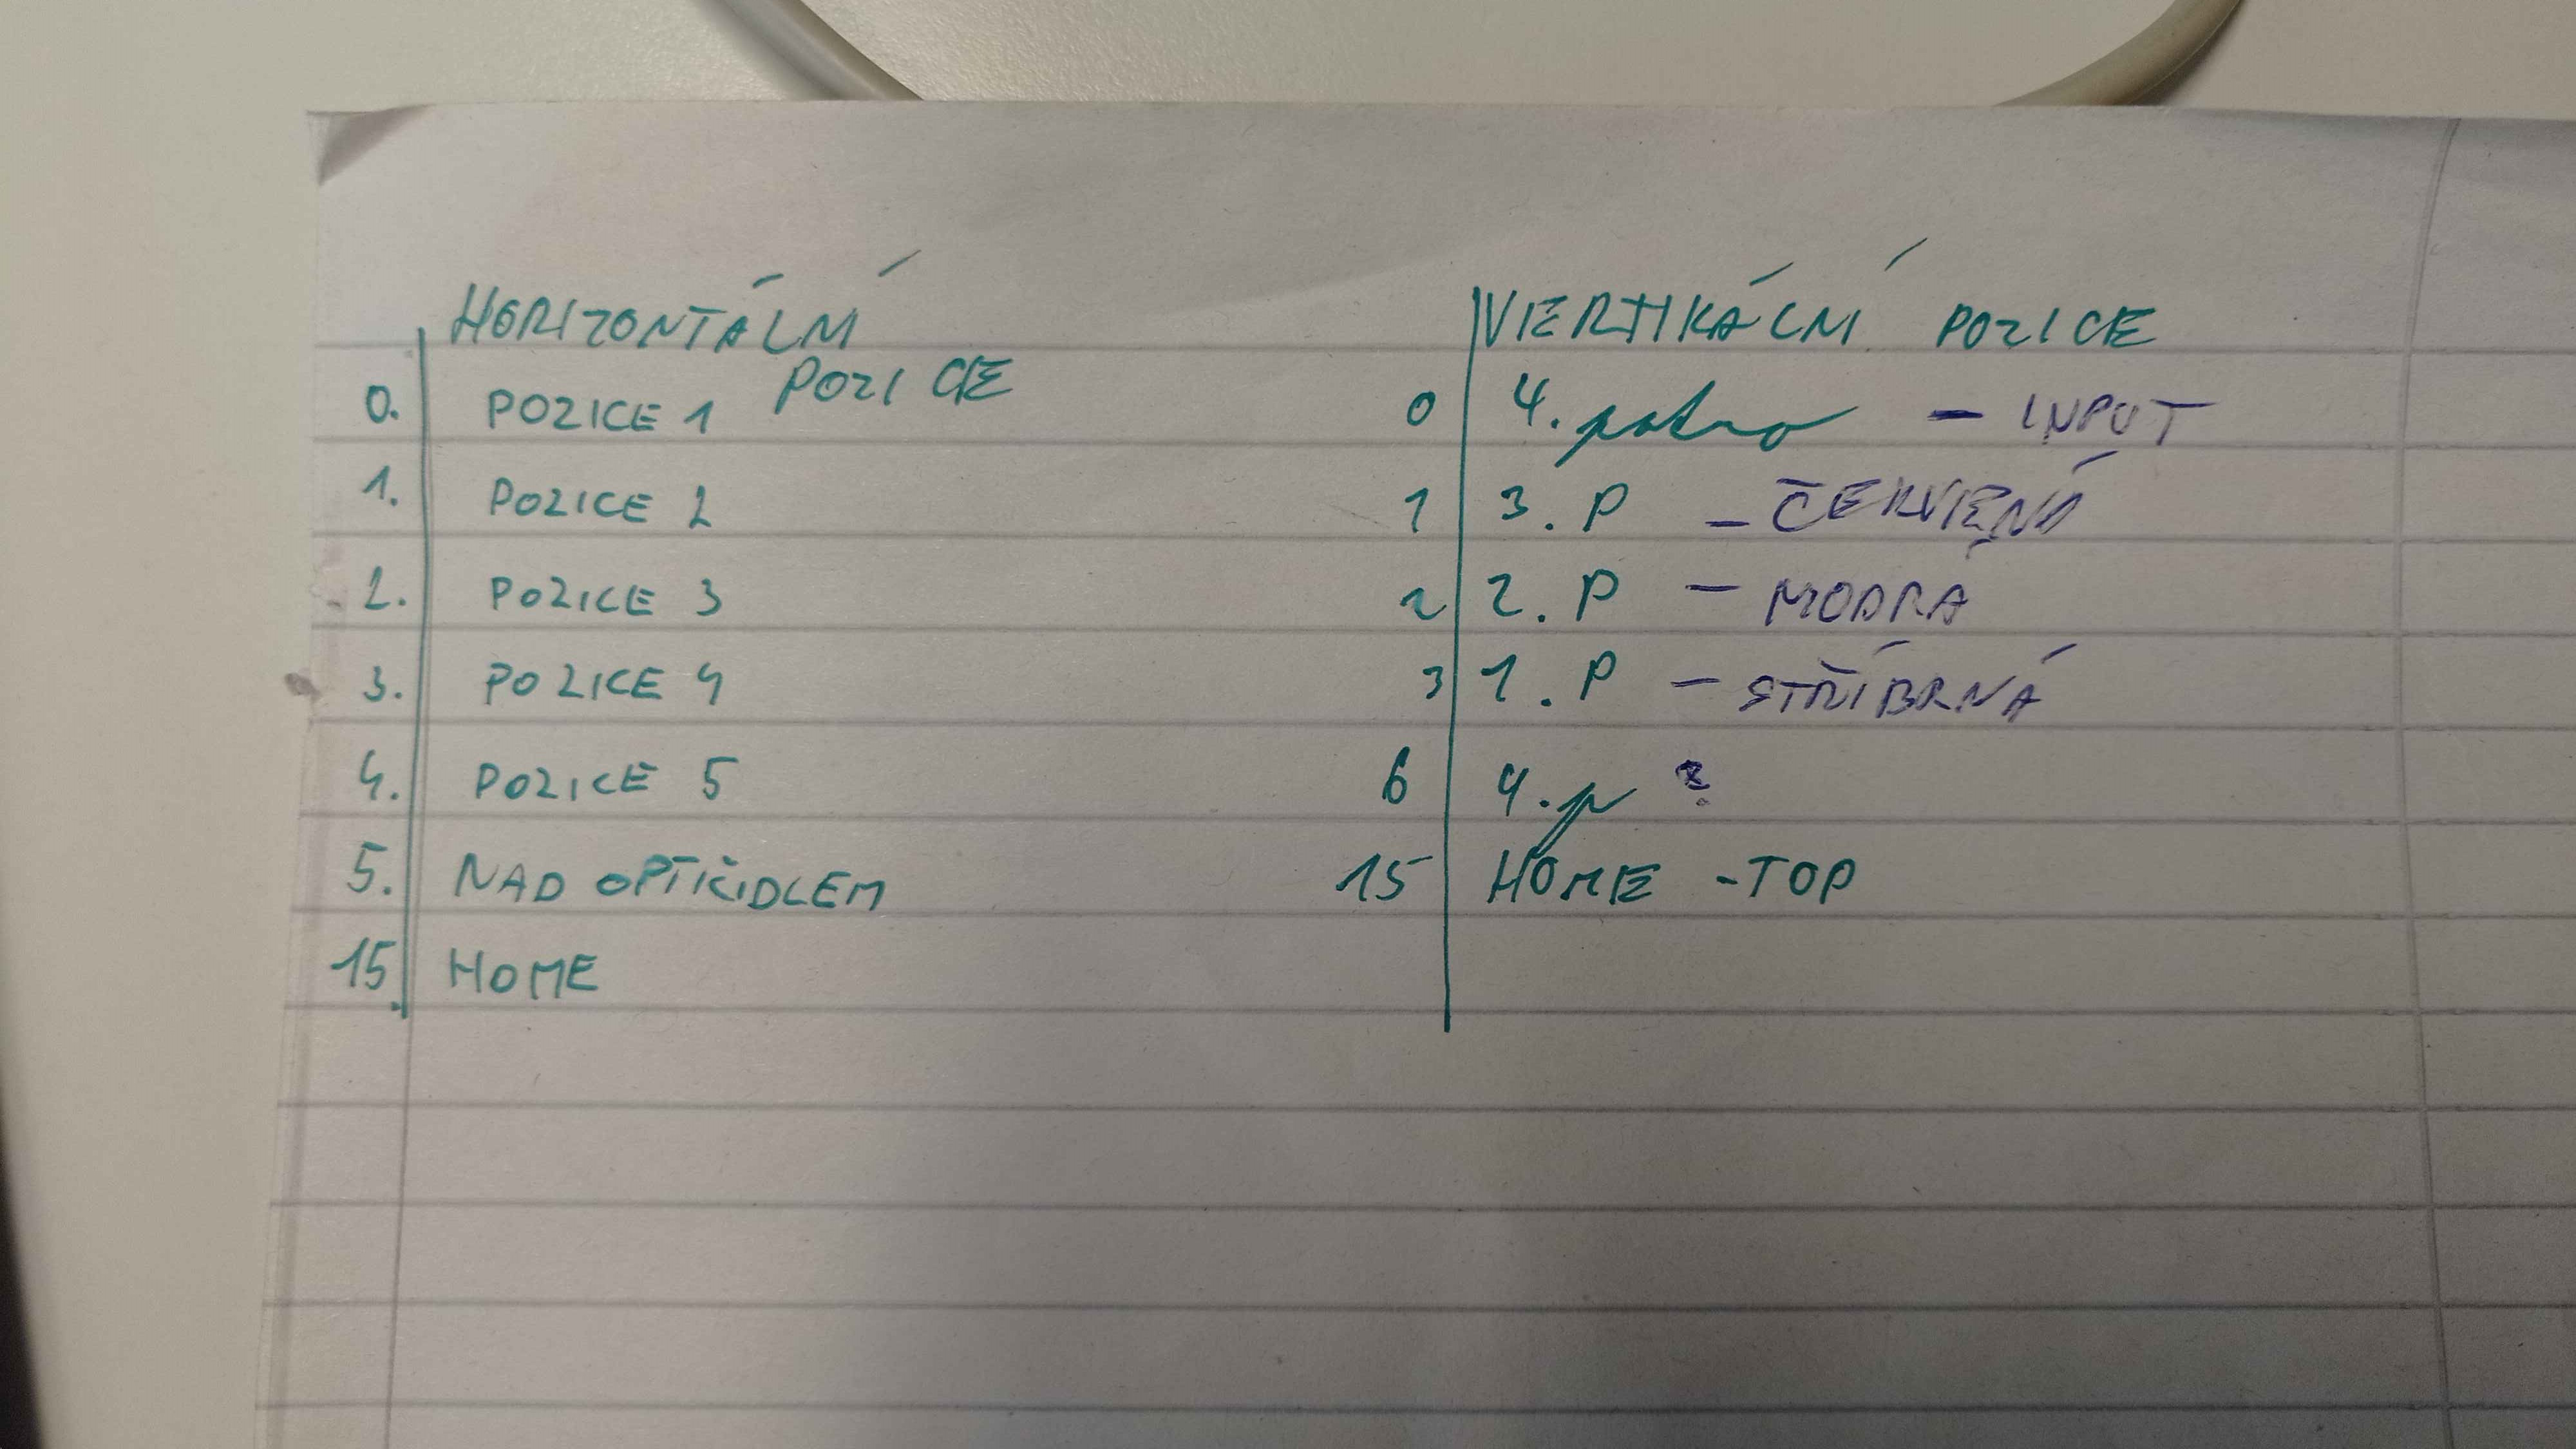 HORIZONTÁLNÍ
POZICE
0. POZICE 1
1. POZICE 2
2. POZICE 3
3. POZICE 4
4. POZICE 5
5. NAD OPTIČIDLEM
15. HOME
VERTIKÁLNÍ POZICE
0 4. patro - INPUT
1 3. P - ČERVENÁ
2 2. P - MODRÁ
3 1. P - STŘÍBRNÁ
6 4. p ?
15 HOME - TOP